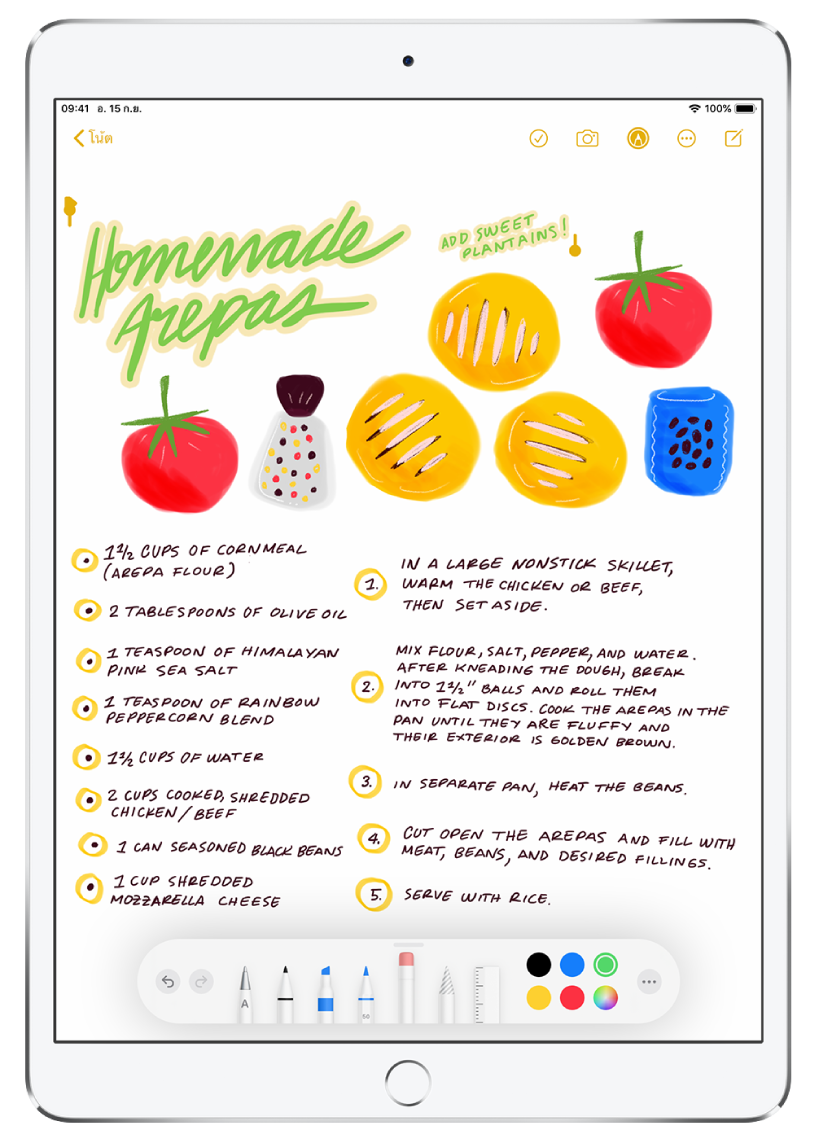 09:41 อ. 15 ก.ย.
100%
โน้ต
Homemade
Arepas
ADD SWEET
PLANTAINS!
1½ CUPS OF CORNMEAL
(AREPA FLOUR)
2 TABLESPOONS OF OLIVE OIL
1 TEASPOON OF HIMALAYAN
PINK SEA SALT
1 TEASPOON OF RAINBOW
PEPPERCORN BLEND
1½ CUPS OF WATER
2 CUPS COOKED, SHREDDED
CHICKEN/BEEF
1 CAN SEASONED BLACK BEANS
1 CUP SHREDDED
MOZZARELLA CHEESE
1. IN A LARGE NONSTICK SKILLET,
WARM THE CHICKEN OR BEEF,
THEN SET ASIDE.
2. MIX FLOUR, SALT, PEPPER, AND WATER.
AFTER KNEADING THE DOUGH, BREAK
INTO 1½" BALLS AND ROLL THEM
INTO FLAT DISCS. COOK THE AREPAS IN THE
PAN UNTIL THEY ARE FLUFFY AND
THEIR EXTERIOR IS GOLDEN BROWN.
3. IN SEPARATE PAN, HEAT THE BEANS.
4. CUT OPEN THE AREPAS AND FILL WITH
MEAT, BEANS, AND DESIRED FILLINGS.
5. SERVE WITH RICE.
A
50